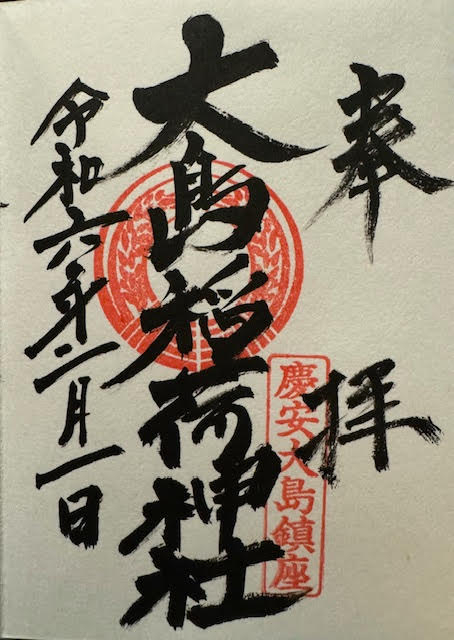 奉拝
慶安大島鎮座
大島稲荷神社
令和六年二月一日